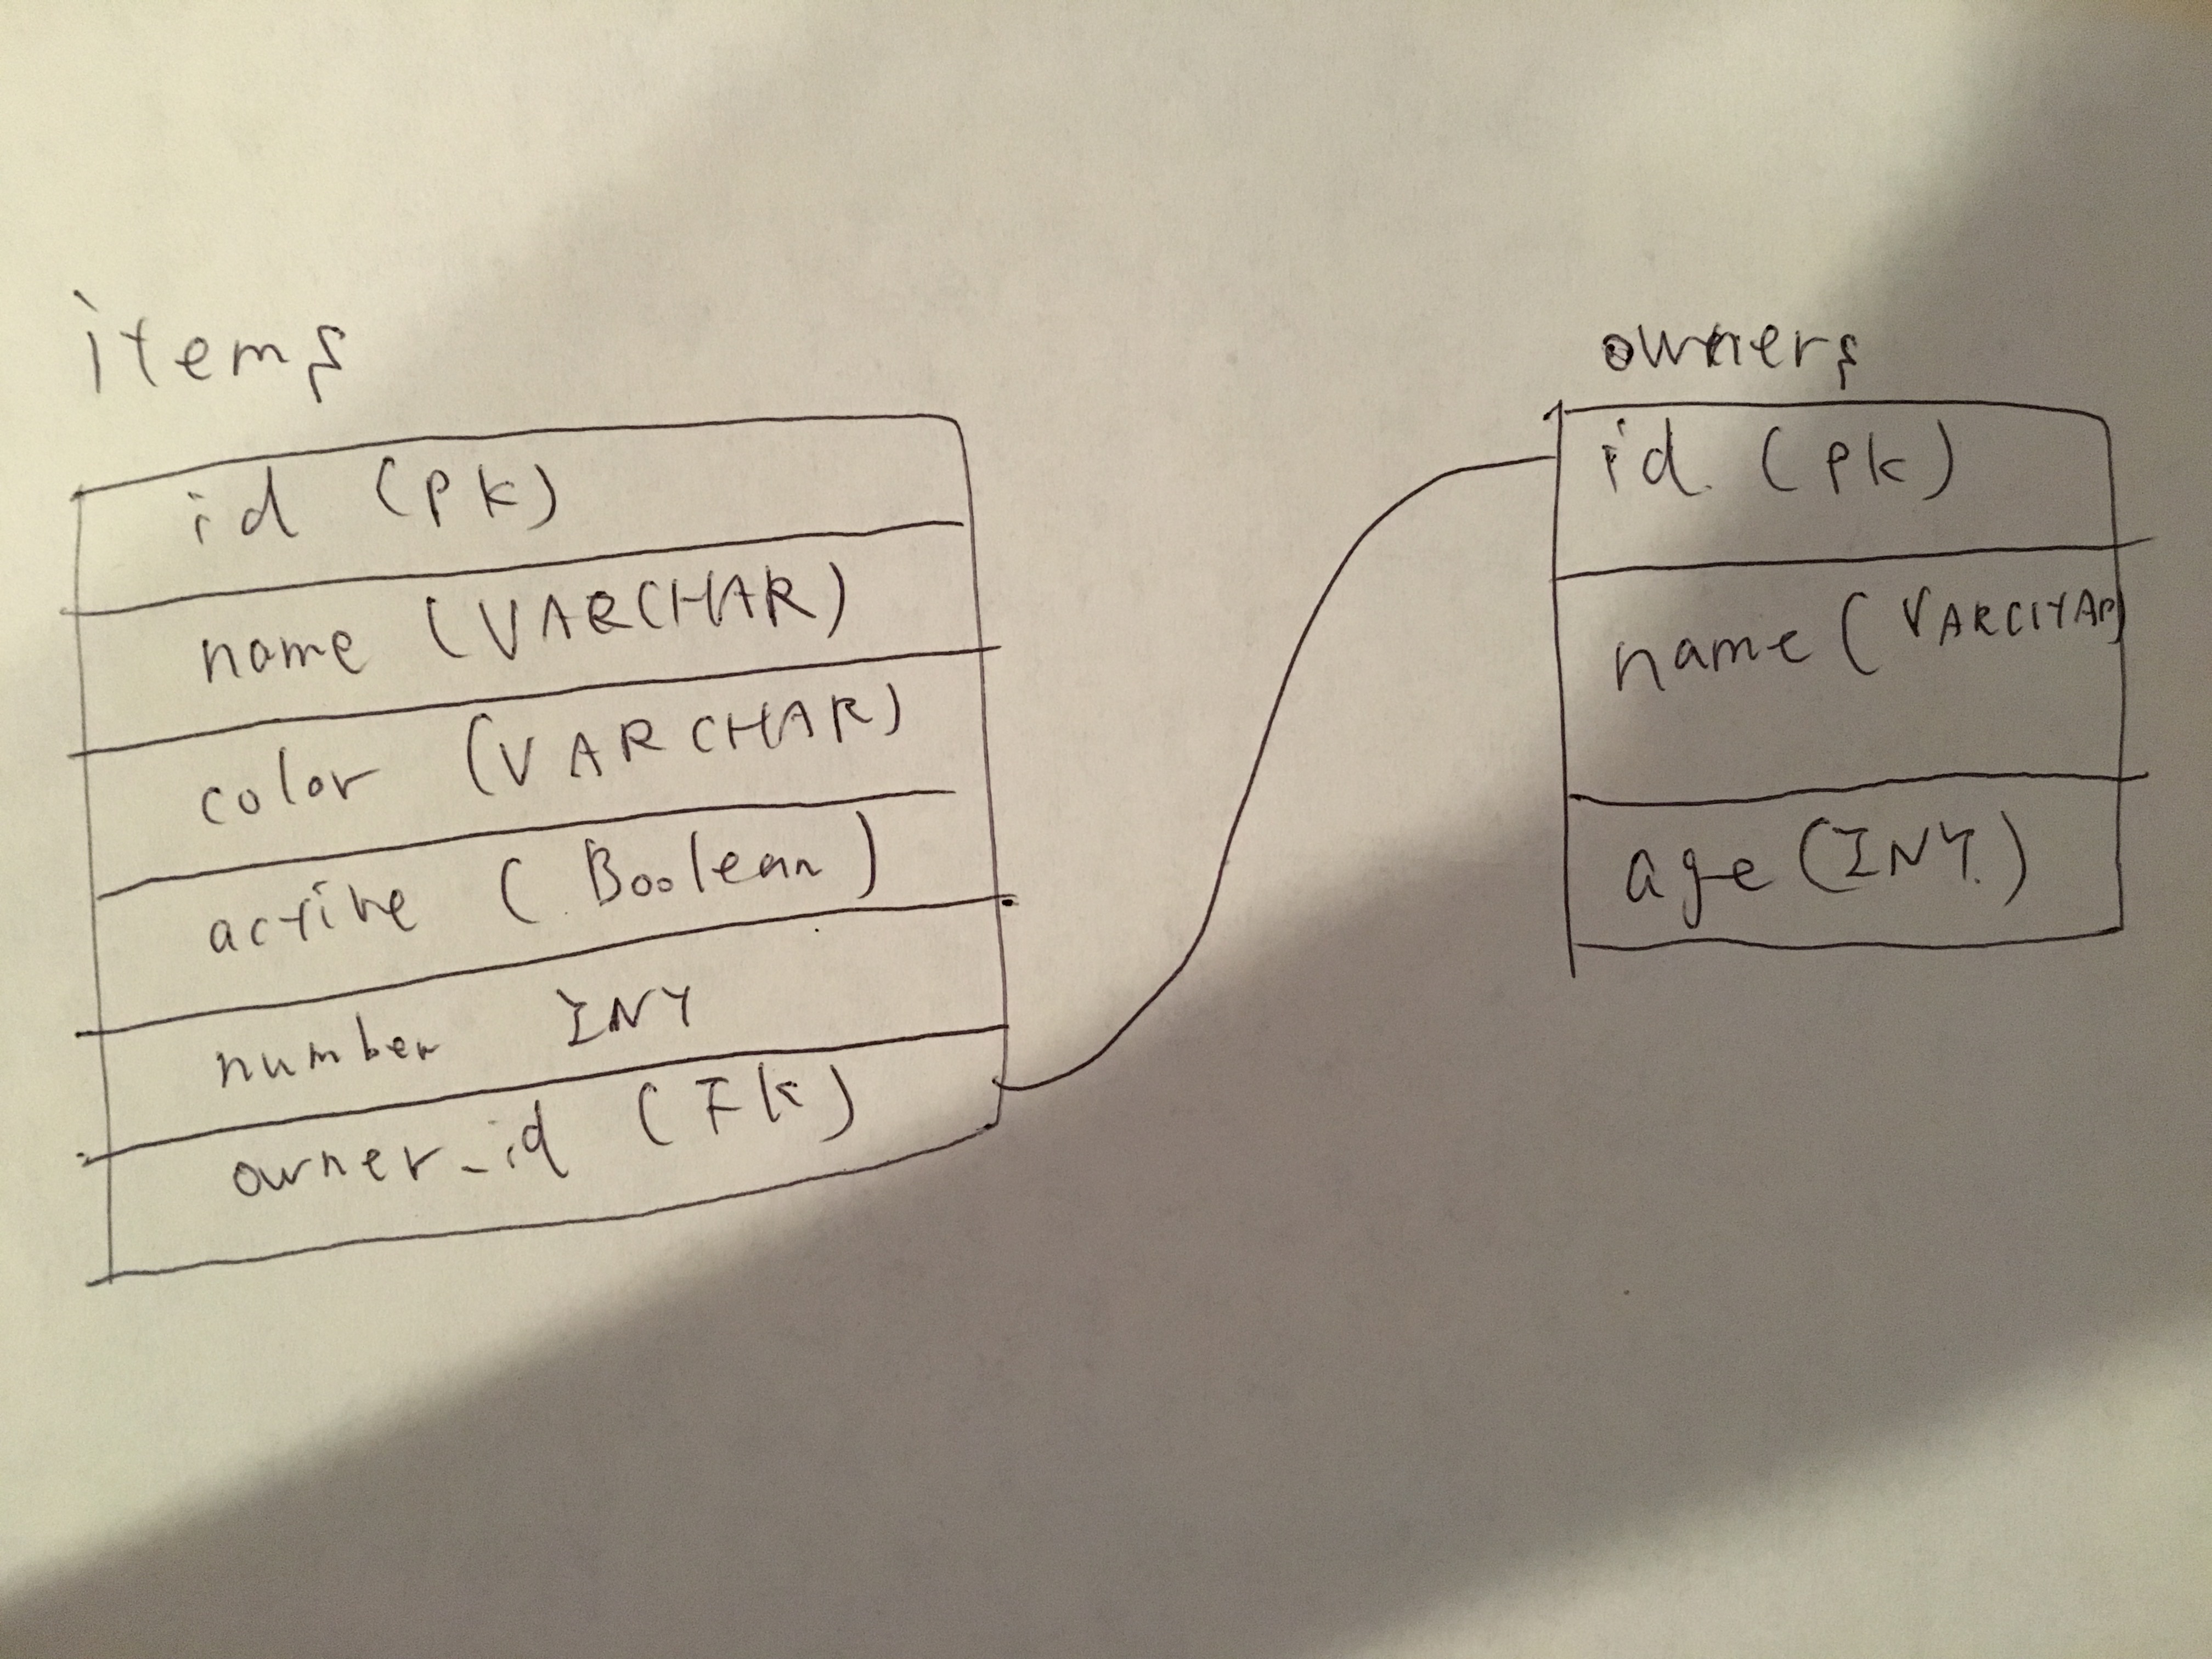 items
id (pk)
name (VARCHAR)
color (VARCHAR)
active (Boolean)
number INT
owner_id (Fk)
owners
id (pk)
name (VARCHAR)
age (INT)